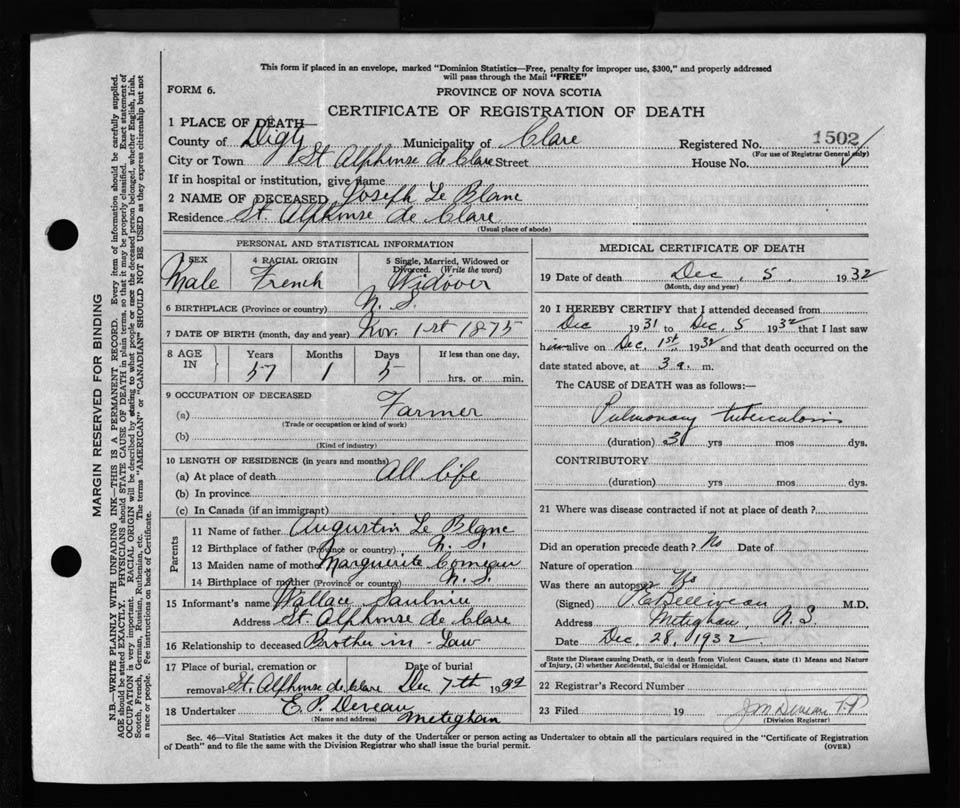 This form if placed in an envelope, marked "Dominion Statistics—Free, penalty for improper use, $300," and properly addressed
will pass through the Mail "FREE"
FORM 6.
PROVINCE OF NOVA SCOTIA
CERTIFICATE OF REGISTRATION OF DEATH
1 PLACE OF DEATH—
County of Digby Municipality of Clare Registered No. 1502
(For use of Registrar General only)
City or Town St Alphonse de Clare Street House No.
If in hospital or institution, give name
2 NAME OF DECEASED Joseph Le Blanc
Residence St. Alphonse de Clare
(Usual place of abode)
PERSONAL AND STATISTICAL INFORMATION
3 SEX 4 RACIAL ORIGIN 5 Single, Married, Widowed or Divorced. (Write the word)
Male French Widover
6 BIRTHPLACE (Province or country) N. S.
7 DATE OF BIRTH (month, day and year) Nov. 1st 1875
8 AGE IN Years Months Days If less than one day,
57 1 5 hrs. or min.
9 OCCUPATION OF DECEASED
(a) Farmer
(Trade or occupation or kind of work)
(b)
(Kind of industry)
10 LENGTH OF RESIDENCE (in years and months)
(a) At place of death All life
(b) In province
(c) In Canada (if an immigrant)
Parents
11 Name of father Augustin Le Blanc
12 Birthplace of father (Province or country) N. S.
13 Maiden name of mother Marguerite Comeau
14 Birthplace of mother (Province or country) N. S.
15 Informant's name Wallace Saulnier
Address St. Alphonse de Clare
16 Relationship to deceased Brother in-Law
17 Place of burial, cremation or Date of burial
removal St. Alphonse de Clare Dec 7th 1932
18 Undertaker E. P. Deveau
(Name and address) Meteghan
MEDICAL CERTIFICATE OF DEATH
19 Date of death Dec. 5. 1932
(Month, day and year)
20 I HEREBY CERTIFY that I attended deceased from
Dec 1931 to Dec. 5 1932 that I last saw
him alive on Dec. 1st 1932 and that death occurred on the
date stated above, at 3 a. m.
The CAUSE OF DEATH was as follows:—
Pulmonary tuberculosis
(duration) 3 yrs mos dys.
CONTRIBUTORY
(duration) yrs mos dys.
21 Where was disease contracted if not at place of death?
Did an operation precede death? No Date of
Nature of operation
Was there an autopsy No
(Signed) Belliveau M.D.
Address Meteghan, N. S.
Date Dec. 28, 1932
State the Disease causing Death, or in death from Violent Causes, state (1) Means and Nature
of Injury, (2) whether Accidental, Suicidal or Homicidal.
22 Registrar's Record Number
23 Filed 19 J M Deveau
(Division Registrar)
Sec. 46—Vital Statistics Act makes it the duty of the Undertaker or person acting as Undertaker to obtain all the particulars required in the "Certificate of Registration
of Death" and to file the same with the Division Registrar who shall issue the burial permit. (OVER)
MARGIN RESERVED FOR BINDING
N.B.—WRITE PLAINLY WITH UNFADING INK—THIS IS A PERMANENT RECORD. Every item of information should be carefully supplied.
AGE should be stated EXACTLY. PHYSICIANS should STATE CAUSE OF DEATH in plain terms, so that it may be properly classified. Exact statement of
OCCUPATION is very important. RACIAL ORIGIN will be described by stating to what people or race the deceased person belonged, whether English, Irish,
Scotch, French, German, Russian, Ruthenian, etc. The terms "AMERICAN" or "CANADIAN" SHOULD NOT BE USED as they express citizenship but not
a race or people. Fee instructions on back of Certificate.